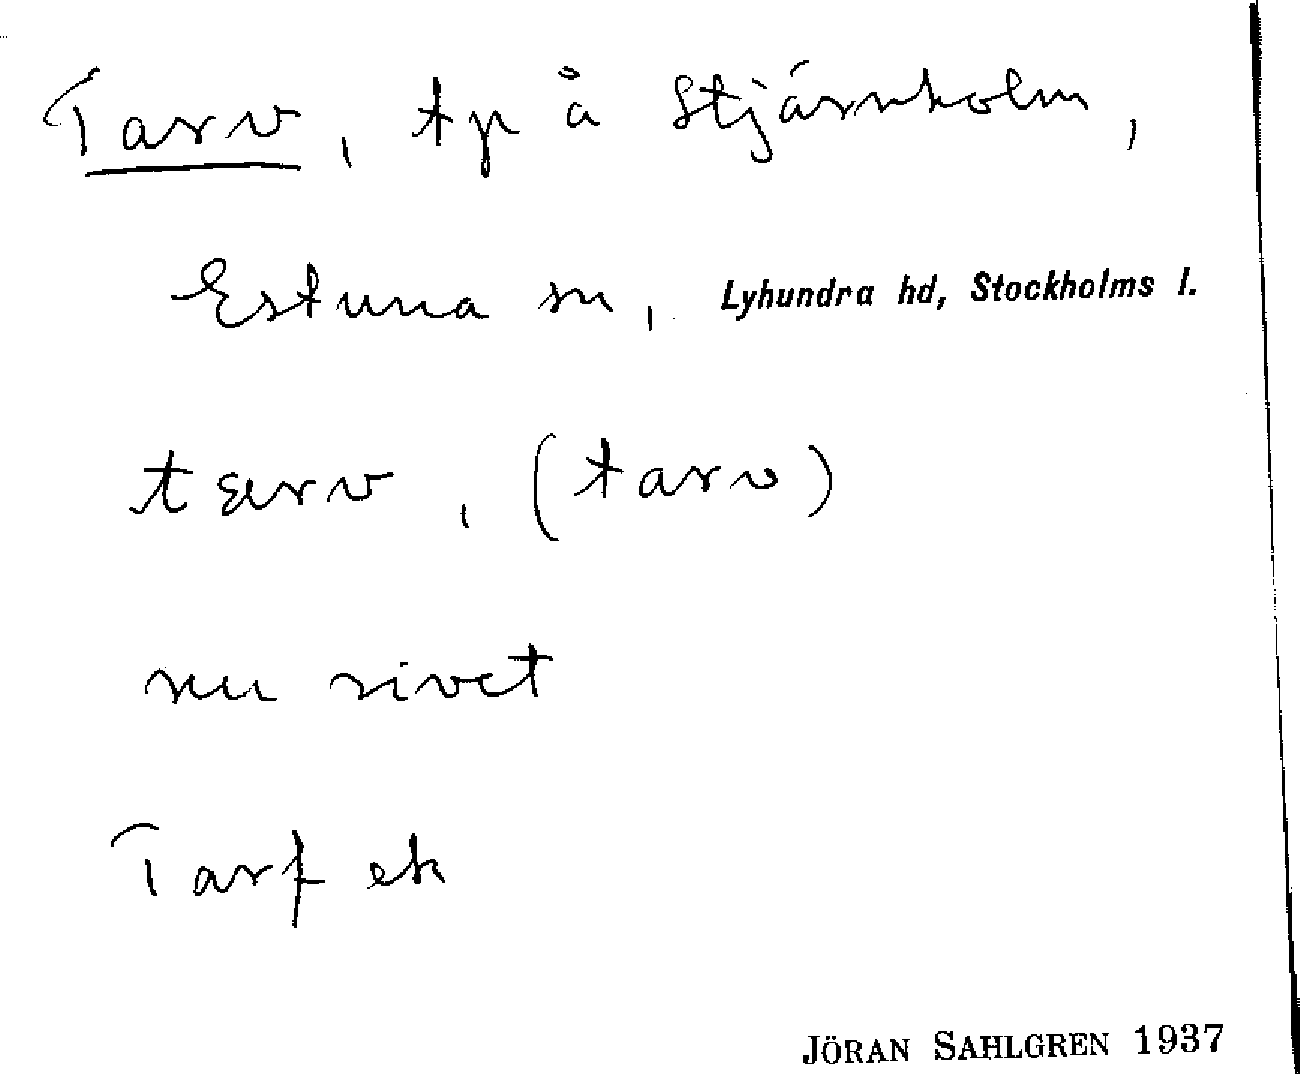 Tarv, tp å Stjärnholm,
Estuna sn, Lyhundra hd, Stockholms l.
tærv, (tarv)
nu rivet
Tarf ek
JÖRAN SAHLGREN 1937